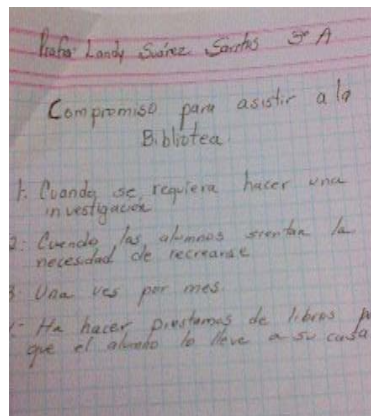 Profra: Landy Suárez Santos 3° A
Compromiso para asistir a la
Bibliotea.
1. Cuando se requiera hacer una
investigación
2: Cuando las alumnos sientan la
necesidad de recrearse
3. Una ves por mes.
- Ha hacer prestamos de libros
que el alumno lo lleve a su casa